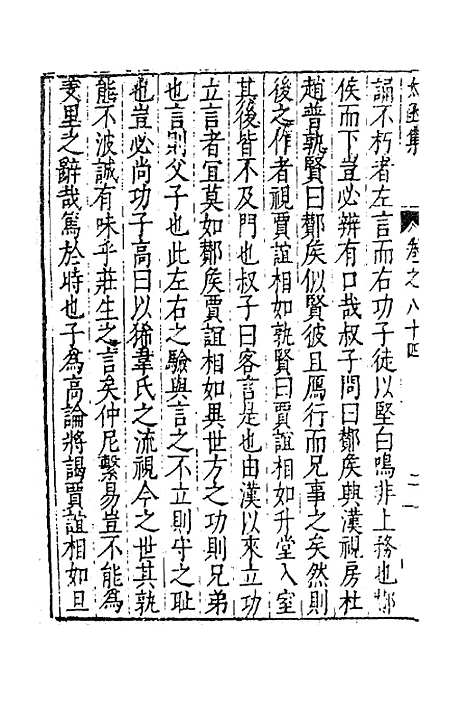 太函集 卷之八十四 二
謂不朽者左言而右功子徒以堅白鳴非上務也鄼
侯而下豈必辨有口哉叔子問曰鄼侯與漢視房杜
趙普孰賢曰鄼侯似賢彼且鴈行而兄事之矣然則
後之作者視賈誼相如孰賢曰賈誼相如升堂入室
其後皆不及門也叔子曰客言是也由漢以來立功
立言者宜莫如鄼侯賈誼相如異世方之功則兄弟
也言則父子也此左右之驗與言之不立則丘之恥
也豈必尚功子高曰以狶韋氏之流視今之世其孰
能不波誠有味乎莊生之言矣仲尼繫易豈不能為
羑里之辭哉篤於時也子為高論將謁賈誼相如旦